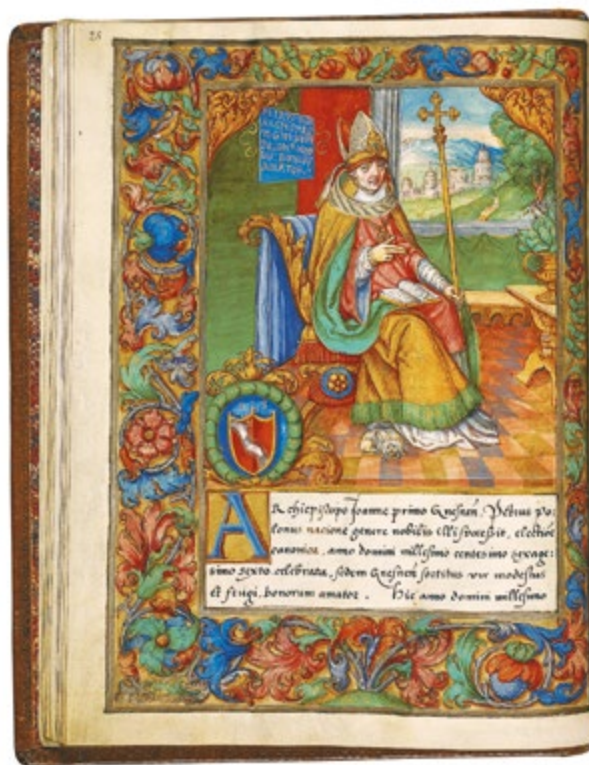 ARchiepiſcopo Joanne primo Gneſneñ. Petrus Po
lonus nacione genere nobilis illi ſucceſsit, electiõe
canonica, anno domini milleſimo centeſimo ſexage:
ſimo sexto celebrata, ſedem Gneſneñ ſortitus vir modeſtus
et frugi, bonorum amator. Hic anno domini milleſimo